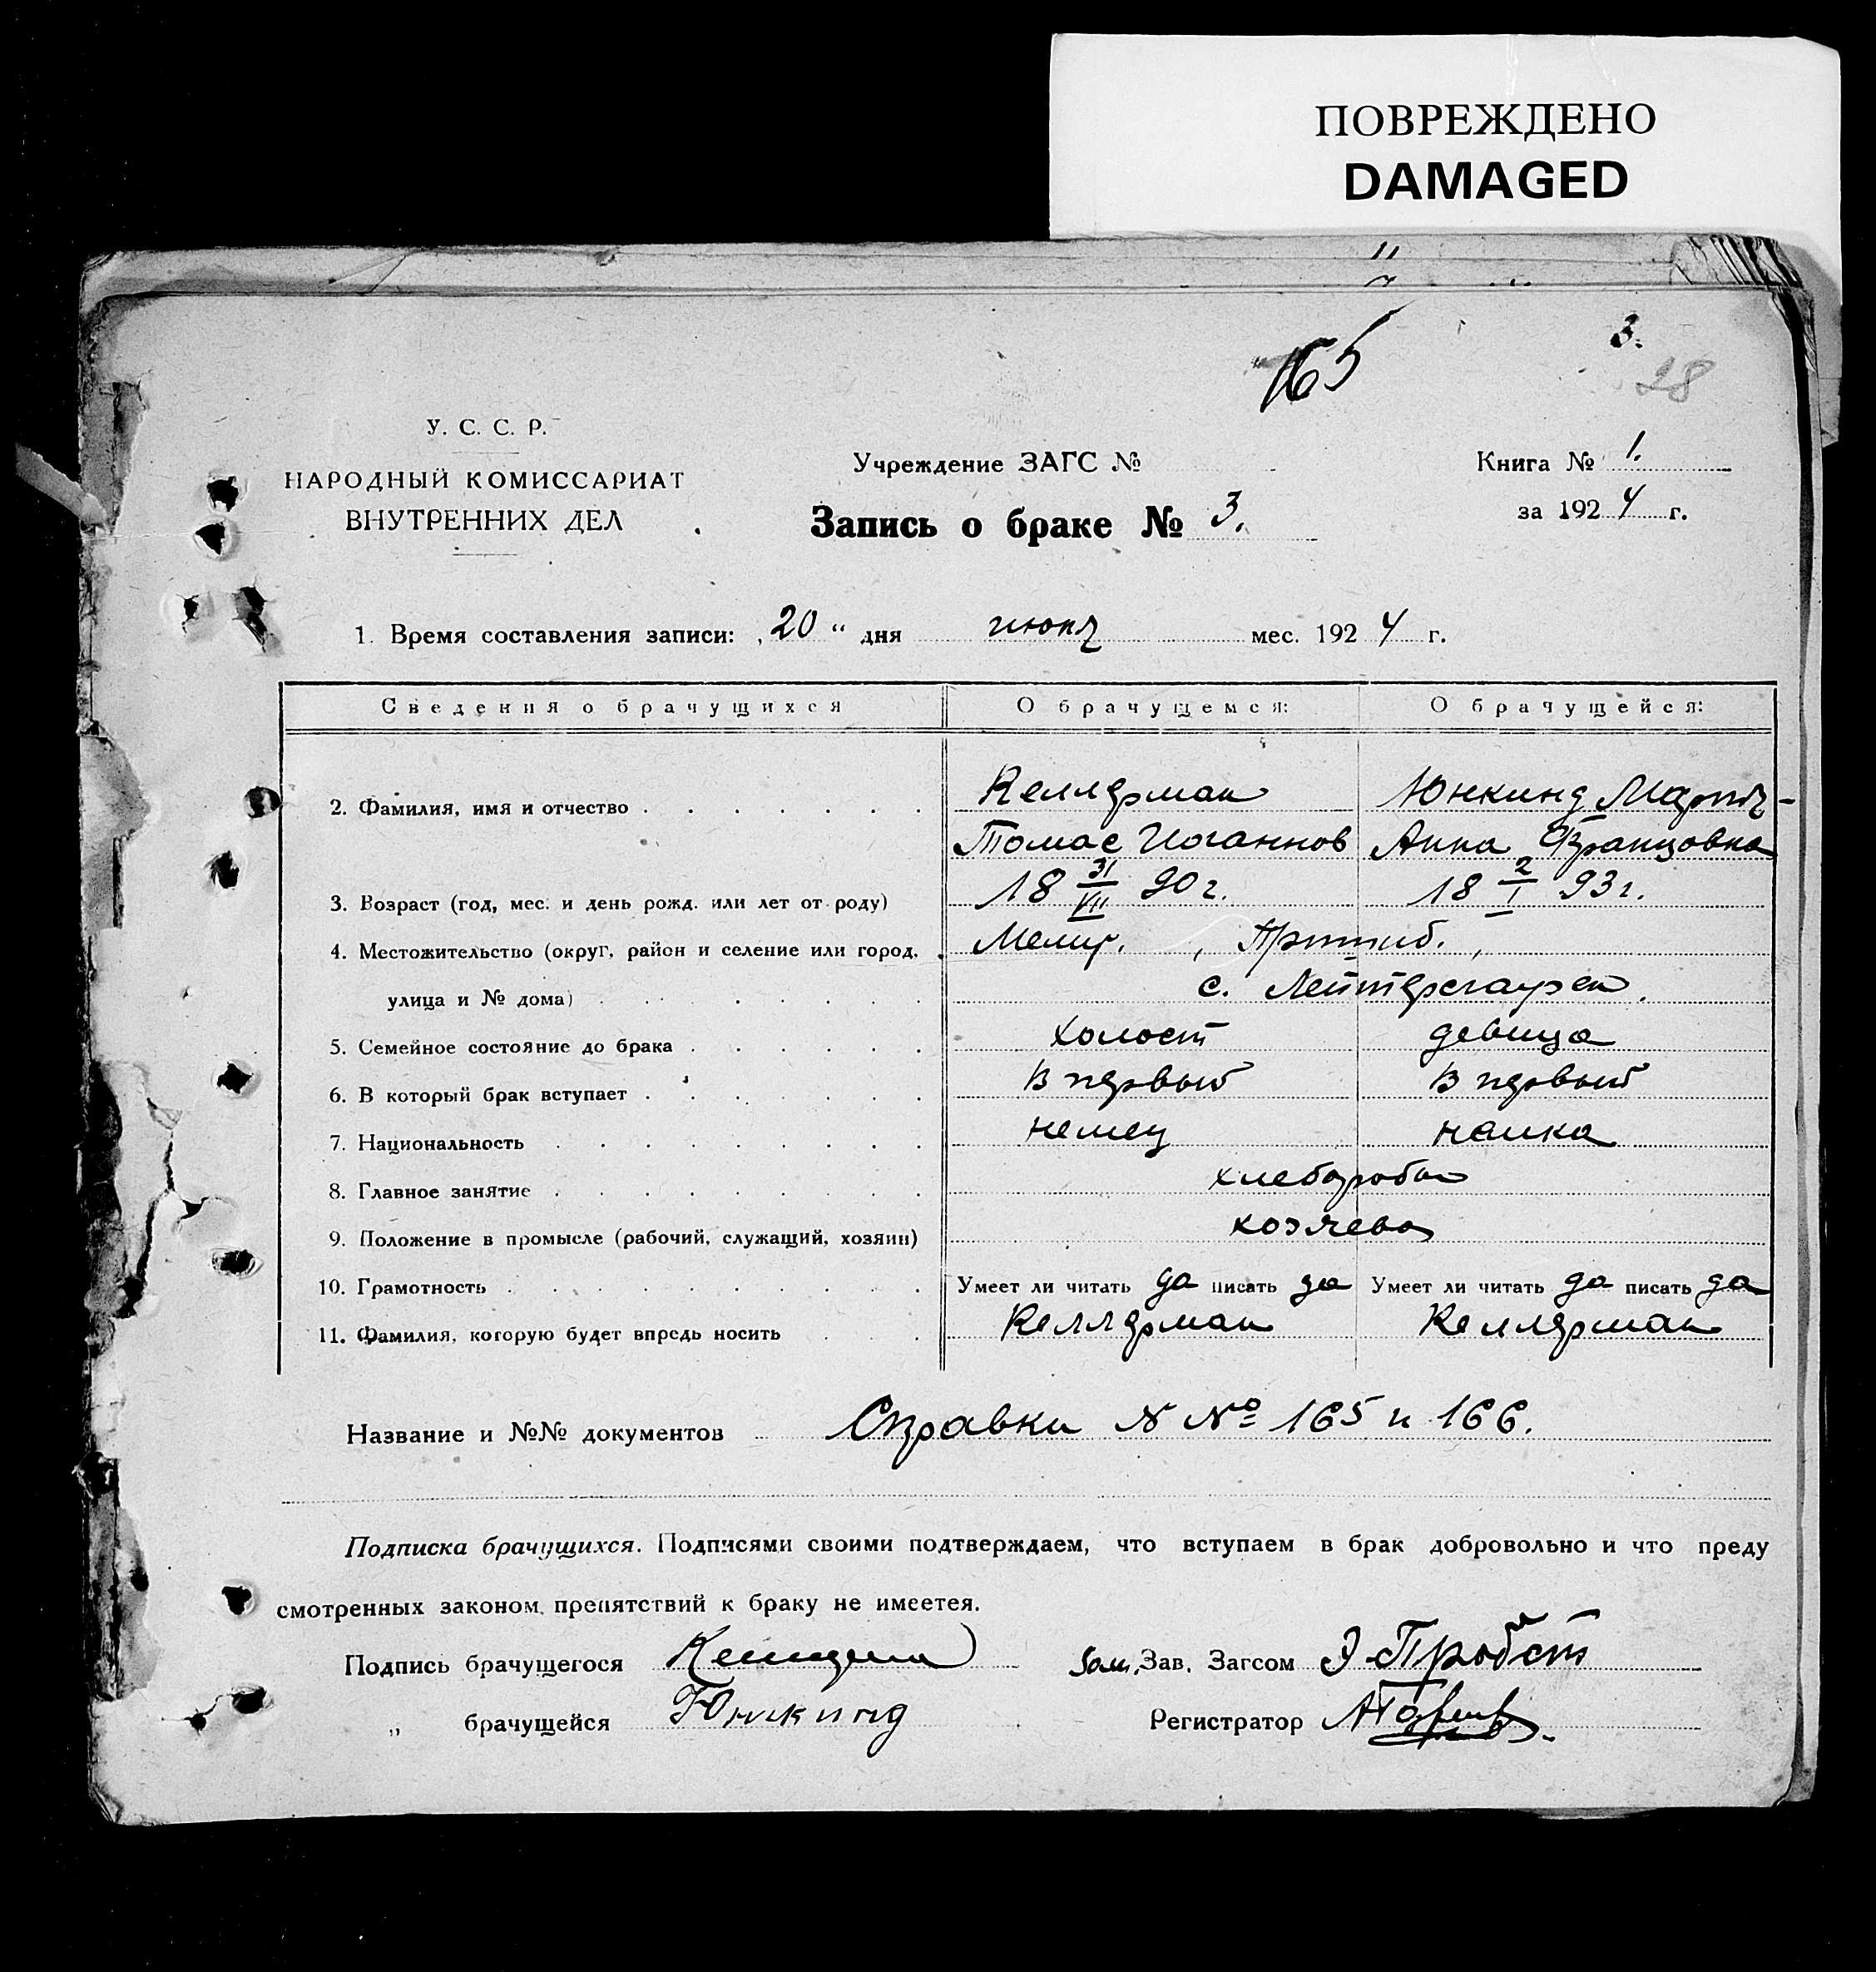 ПОВРЕЖДЕНО
DAMAGED
165
3.
28
У. С. С. Р.
НАРОДНЫЙ КОМИССАРИАТ
ВНУТРЕННИХ ДЕЛ
Учреждение ЗАГС №
Запись о браке № 3.
Книга № 1.
за 1924 г.
1. Время составления записи: „20" дня июня мес. 1924 г.
Сведения о брачущихся О брачущемся: О брачущейся:
2. Фамилия, имя и отчество Келлерман Юнкинд Мария-
Томас Иоганнов Анна Францовна
3. Возраст (год, мес. и день рожд. или лет от роду) 18 31/VII 90 г. 18 2/I 93 г.
4. Местожительство (округ, район и селение или город, Мелит. , Пришиб. ,
улица и № дома) с. Лейтерсгаузен.
5. Семейное состояние до брака холост девица
6. В который брак вступает В первый В первый
7. Национальность немец немка
8. Главное занятие хлеборобы
9. Положение в промысле (рабочий, служащий, хозяин) хозяева
10. Грамотность Умеет ли читать да писать да Умеет ли читать да писать да
11. Фамилия, которую будет впредь носить Келлерман Келлерман
Название и №№ документов Справки N №165 и 166.
Подписка брачущихся. Подписями своими подтверждаем, что вступаем в брак добровольно и что преду
смотренных законом препятствий к браку не имеется.
Подпись брачущегося Зам. Зав. Загсом Э. Пробст
„ брачущейся Юнкинд Регистратор